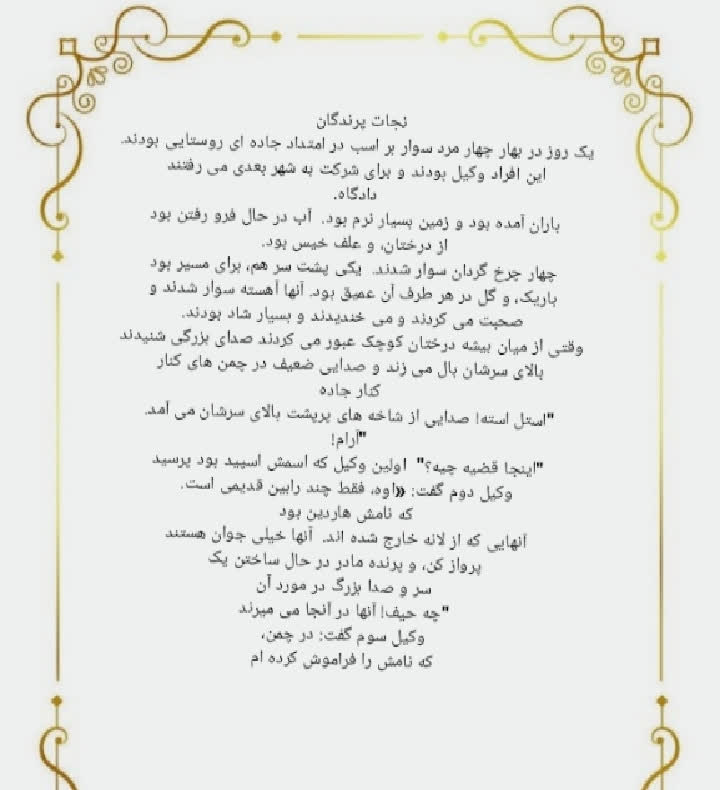 نجات پرندگان
یک روز در بهار چهار مرد سوار بر اسب در امتداد جاده ای روستایی بودند.
این افراد وکیل بودند و برای شرکت به شهر بعدی می رفتند
دادگاه.
باران آمده بود و زمین بسیار نرم بود. آب در حال فرو رفتن بود
از درختان، و علف خیس بود.
چهار چرخ گردان سوار شدند. یکی پشت سر هم، برای مسیر بود
باریک، و گل در هر طرف آن عمیق بود. آنها آهسته سوار شدند و
صحبت می کردند و می خندیدند و بسیار شاد بودند.
وقتی از میان بیشه درختان کوچک عبور می کردند صدای بزرگی شنیدند
بالای سرشان بال می زند و صدایی ضعیف در چمن های کنار
کنار جاده
"استل استه! صدایی از شاخه های پرپشت بالای سرشان می آمد.
"آرام!
"اینجا قضیه چیه؟" اولین وکیل که اسمش اسپید بود پرسید
وکیل دوم گفت: «اوه، فقط چند رابین قدیمی است.
که نامش هاردین بود
آنهایی که از لانه خارج شده اند. آنها خیلی جوان هستند
پرواز کن، و پرنده مادر در حال ساختن یک
سر و صدا بزرگ در مورد آن
"چه حیف! آنها در آنجا می میرند
وکیل سوم گفت: در چمن،
که نامش را فراموش کرده ام